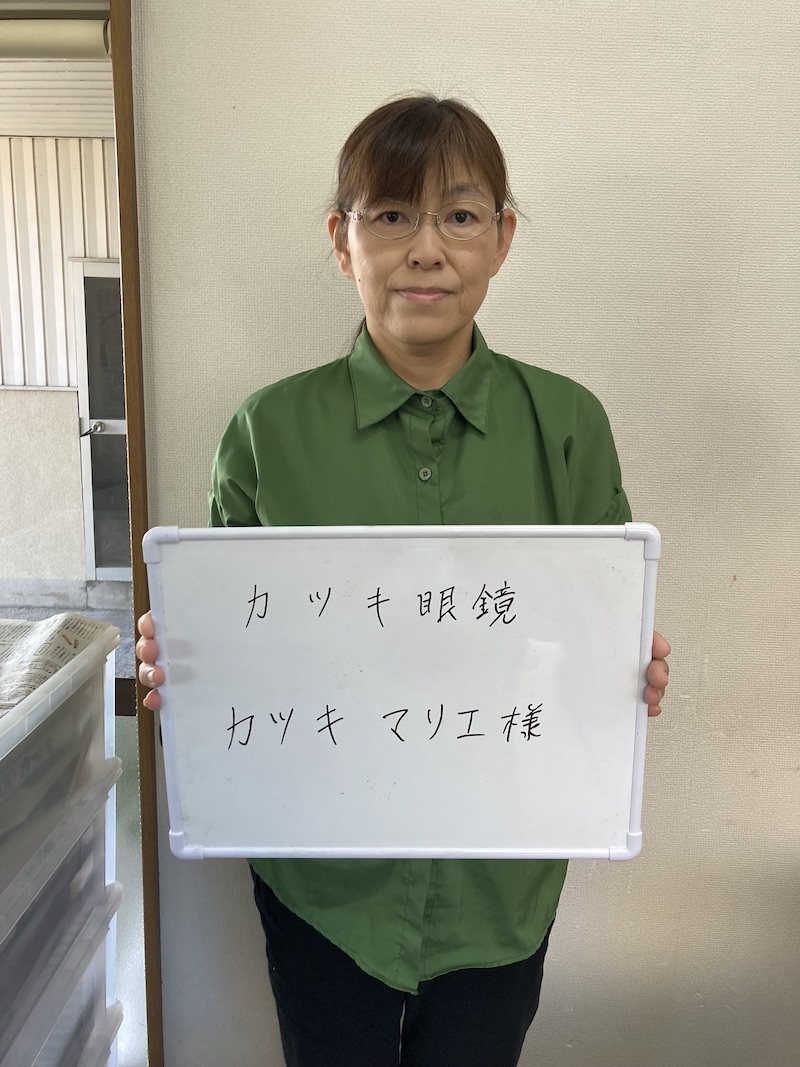 カツキ眼鏡
カツキ マリエ様